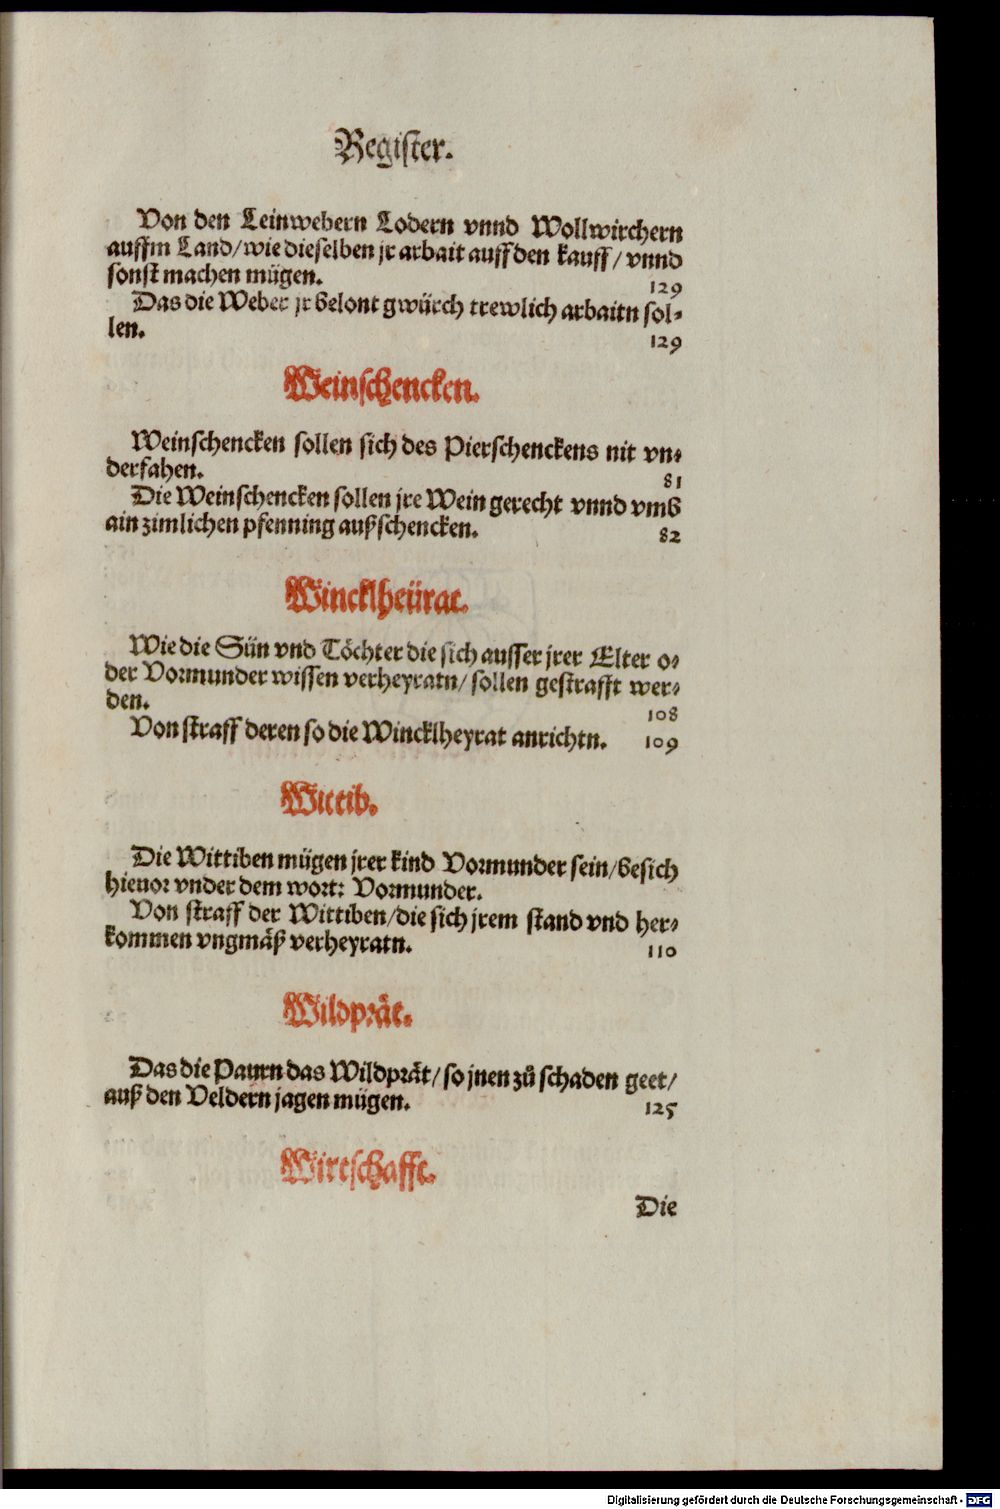 Register.
Von den Leinwebern Lodern vnnd Wollwirchern
auffm Land/wie dieselben jr arbait auff den kauff/ vnnd
sonst machen mügen. 129
Das die Weber jr belont gwürch trewlich arbaitn sol-
len. 129
Weinschencken.
Weinschencken sollen sich des Pierschenckens nit vn-
derfahen. 81
Die Weinschencken sollen jre Wein gerecht vnnd vmb
ain zimlichen pfenning außschencken. 82
Wincklheürat.
Wie die Sün vnd Töchter die sich ausser jrer Elter o-
der Vormunder wissen verheyratn/ sollen gestrafft wer-
den. 108
Von straff deren so die Wincklheyrat anrichtn. 109
Wittib.
Die Wittiben mügen jrer kind Vormunder sein/besich
hieuor vnder dem wort: Vormunder.
Von straff der Wittiben/die sich jrem stand vnd her-
kommen vngmäß verheyratn. 110
Wildprät.
Das die Paurn das Wildprät/ so jnen zů schaden geet/
auß den Veldern jagen mügen. 125
Wirtschafft.
Die
Digitalisierung gefördert durch die Deutsche Forschungsgemeinschaft - DFG